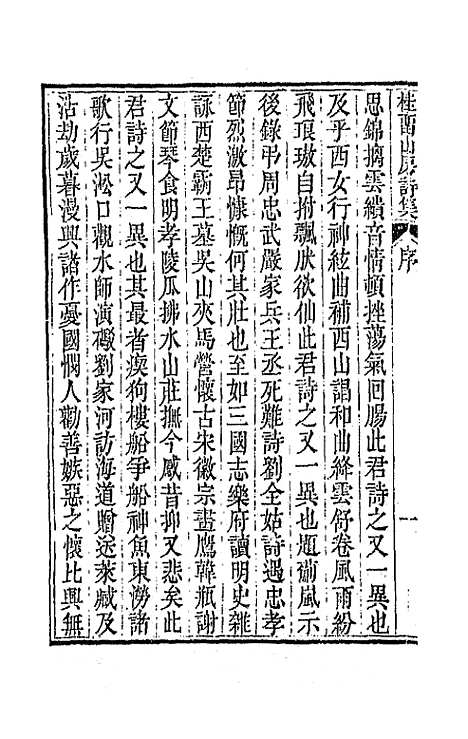 桂酉山房詩集 序 一
思錦擒雲繢音情頓挫蕩氣回腸此君詩之又一異也
及乎西女行神絃曲補西山謌和曲絳雲舒卷風雨紛
飛琅璈自拊飄肰欲仙此君詩之又一異也題蘭嵐示
後錄弔周忠武嚴家兵王丞死難詩劉全姑詩過忠孝
節烈激昂慷慨何其壯也至如三國志樂府讀明史雜
詠西楚霸王墓吳山夾馬營懷古宋徽宗畫鷹韓瓶謝
文節琴食明孝陵瓜拂水山莊撫今感昔抑又悲矣此
君詩之又一異也其最者瘈狗樓船爭船神魚東澇諸
歌行吳淞口觀水師演礮劉家河訪海道贈送萊臧及
浩劫歲暮漫興諸作憂國憫人勸善嫉惡之懷比興無